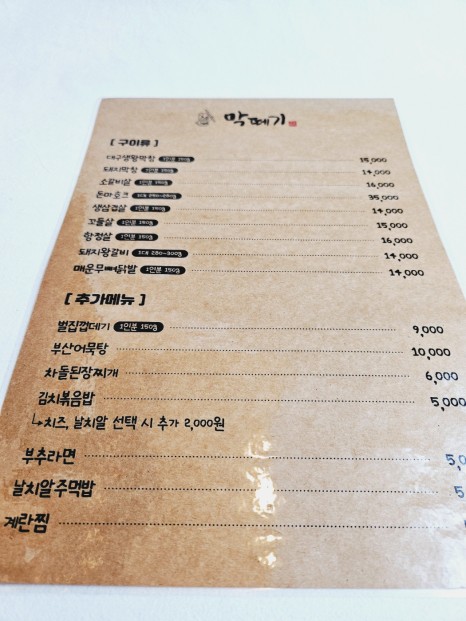 막떼기
[ 구이류 ]
대구생왕막창 1인분 150g 15,000
돼지막창 1인분 150g 14,000
소갈비살 1인분 150g 16,000
돈마호크 1대 250~280g 35,000
생삼겹살 1인분 150g 14,000
꼬들살 1인분 150g 15,000
항정살 1인분 150g 16,000
돼지왕갈비 1대 280~300g 14,000
매운무뼈닭발 1인분 150g 14,000
[ 추가메뉴 ]
벌집껍데기 1인분 150g 9,000
부산어묵탕 10,000
차돌된장찌개 6,000
김치볶음밥 5,000
↳치즈, 날치알 선택 시 추가 2,000원
부추라면 5,0
날치알주먹밥 5
계란찜